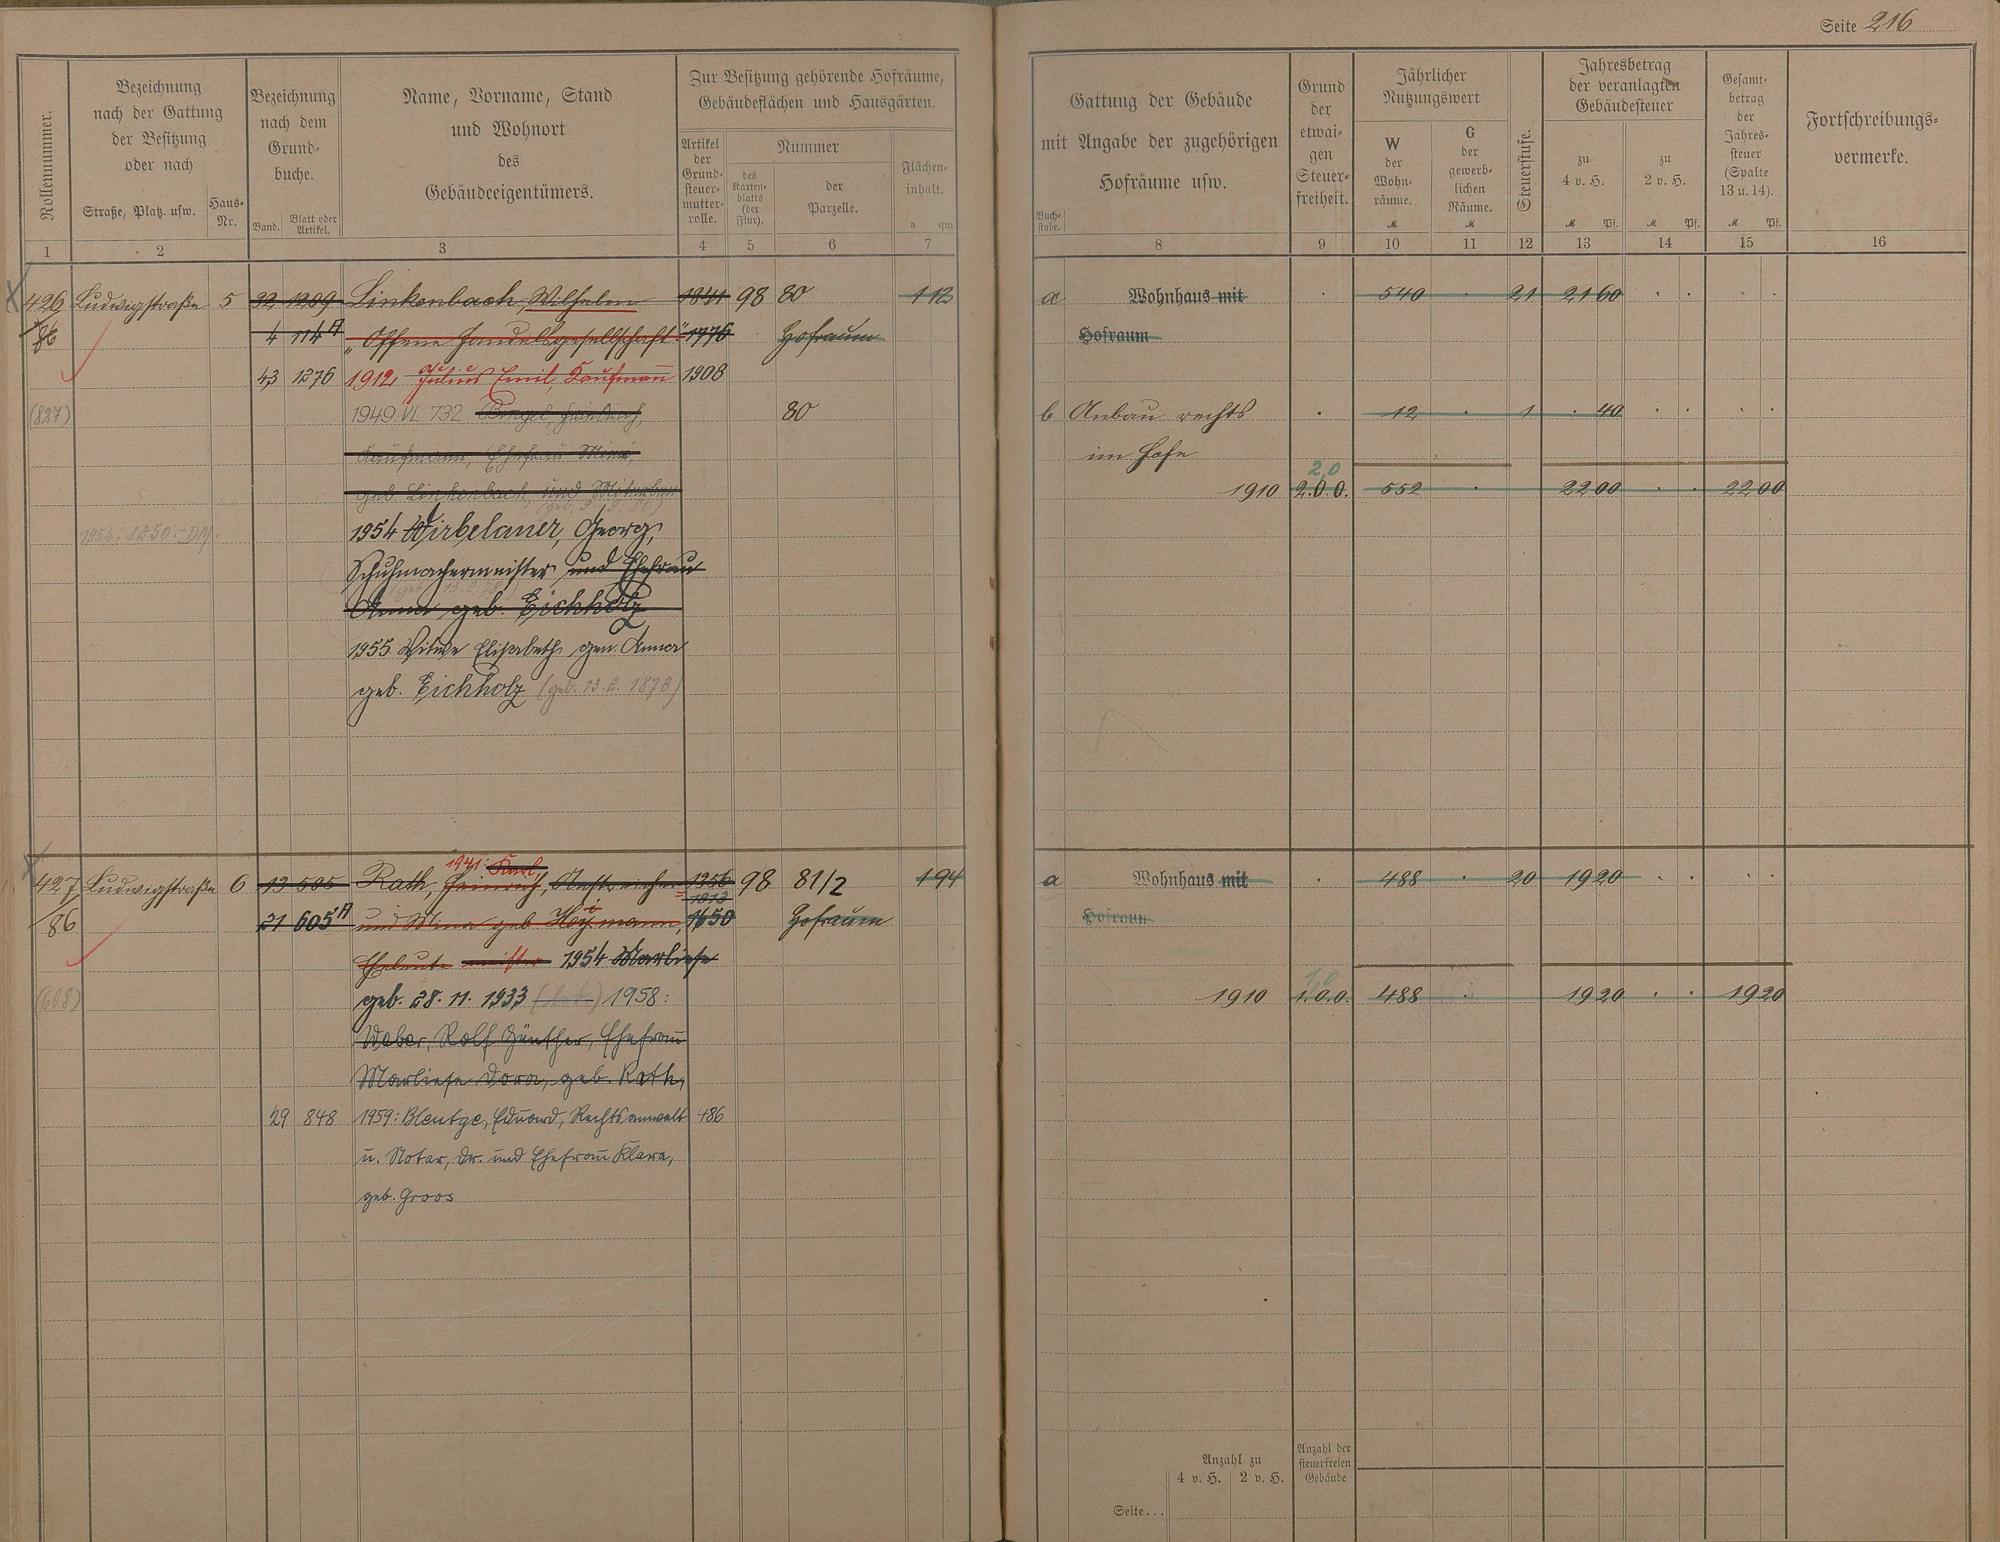 Seite 216
Rollennummer.
Bezeichnung
nach der Gattung
der Besitzung
oder nach
Straße, Platz usw.
Haus-
Nr.
Bezeichnung
nach dem
Grund-
buche.
Band.
Blatt oder
Artikel.
Name, Vorname, Stand
und Wohnort
des
Gebäudeeigentümers.
Zur Besitzung gehörende Hofräume,
Gebäudeflächen und Hausgärten.
Artikel
der
Grund-
steuer-
mutter-
rolle.
Nummer
des
Karten-
blatts
(der
Flur).
der
Parzelle.
Flächen-
inhalt.
a qm
1 2 3 4 5 6 7
Gattung der Gebäude
mit Angabe der zugehörigen
Hofräume usw.
Buch-
stabe.
Grund
der
etwai-
gen
Steuer-
freiheit.
Jährlicher
Nutzungswert
W
der
Wohn-
räume.
M
G
der
gewerb-
lichen
Räume.
M
Steuerstufe.
Jahresbetrag
der veranlagten
Gebäudesteuer
zu
4 v. H.
M Pf.
zu
2 v. H.
M Pf.
Gesamt-
betrag
der
Jahres-
steuer
(Spalte
13 u. 14).
M Pf.
Fortschreibungs-
vermerke.
8 9 10 11 12 13 14 15 16
426 Ludwigstraße 5 32 1209 Linkenbach, Wilhelm 1841 98 80 112
86 4 114A „Offene Handelsgesellschaft" 1776 Hofraum
43 1276 1912 Julius Emil, Kaufmann 1908
(827) 1949 VI 732 80
Kaufmann, Ehefrau
geb. Linkenbach und Miterben
1954: 8250.- DM.
1954 Wirbelauer, Georg,
Schuhmachermeister und Ehefrau
Anna geb. Eichholz
1955 Witwe Elisabeth gen. Anna
geb. Eichholz (geb. 13.2.1878)
a Wohnhaus mit 540 21 21 60
Hofraum
b Anbau rechts 12 1 40
im Hofe
2.0
1910 2.0.0. 552 22 00 22 00
1941: Karl
427 Ludwigstraße 6 13 505 Rath, Heinrich, Anstreicher 1356 98 81/2 194
86 21 605A und Mina geb. Heymann, 1650 Hofraum
Eheleute meister 1954 Marliese
(608) geb. 28.11.1933 1958:
Weber, Rolf Günther, Ehefrau
Marliese Dora, geb. Rath,
29 848 1959: Blentge, Eduard, Rechtsanwalt 486
u. Notar, Dr. und Ehefrau Klara,
geb. Groos
a Wohnhaus mit 488 20 19 20
Hofraum
1910 1.0.0. 488 19 20 19 20
Anzahl zu
4 v. H. 2 v. H.
Anzahl der
steuerfreien
Gebäude
Seite...